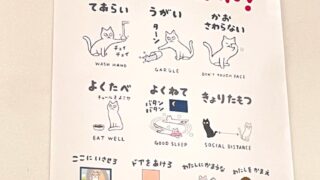 てあらい
うがい
かお
さわらない
ターン
チェイ
チェイ
WASH HAND
GARGLE
DON'T TOUCH FACE
よくたべ
よくねて
きょりたもつ
バタン
バタン
EAT WELL
GOOD SLEEP
SOCIAL DISTANCE
ここにいさせろ
ドアをあけろ
わたしにかまうな
わたしをかまえ